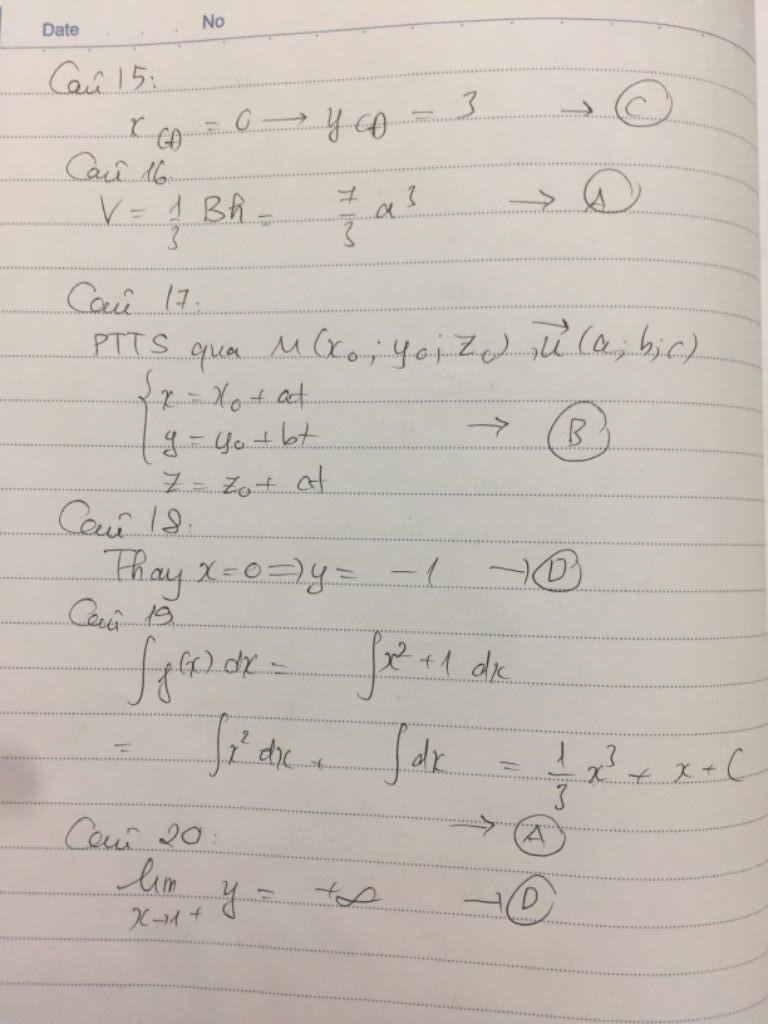 Date No
Câu 15:
x_CĐ = 0 → y_CĐ = 3 → C
Câu 16
V = 1/3 Bh = 7/3 a³ → A
Câu 17:
PTTS qua M(x₀; y₀; z₀), u⃗ (a; b; c)
{ x = x₀ + at
y = y₀ + bt → B
z = z₀ + at
Câu 18:
Thay x = 0 ⇒ y = -1 → D
Câu 19
∫f(x) dx = ∫x² + 1 dx
= ∫x² dx + ∫dx = 1/3 x³ + x + C
→ A
Câu 20:
lim y = +∞ → D
x→1+